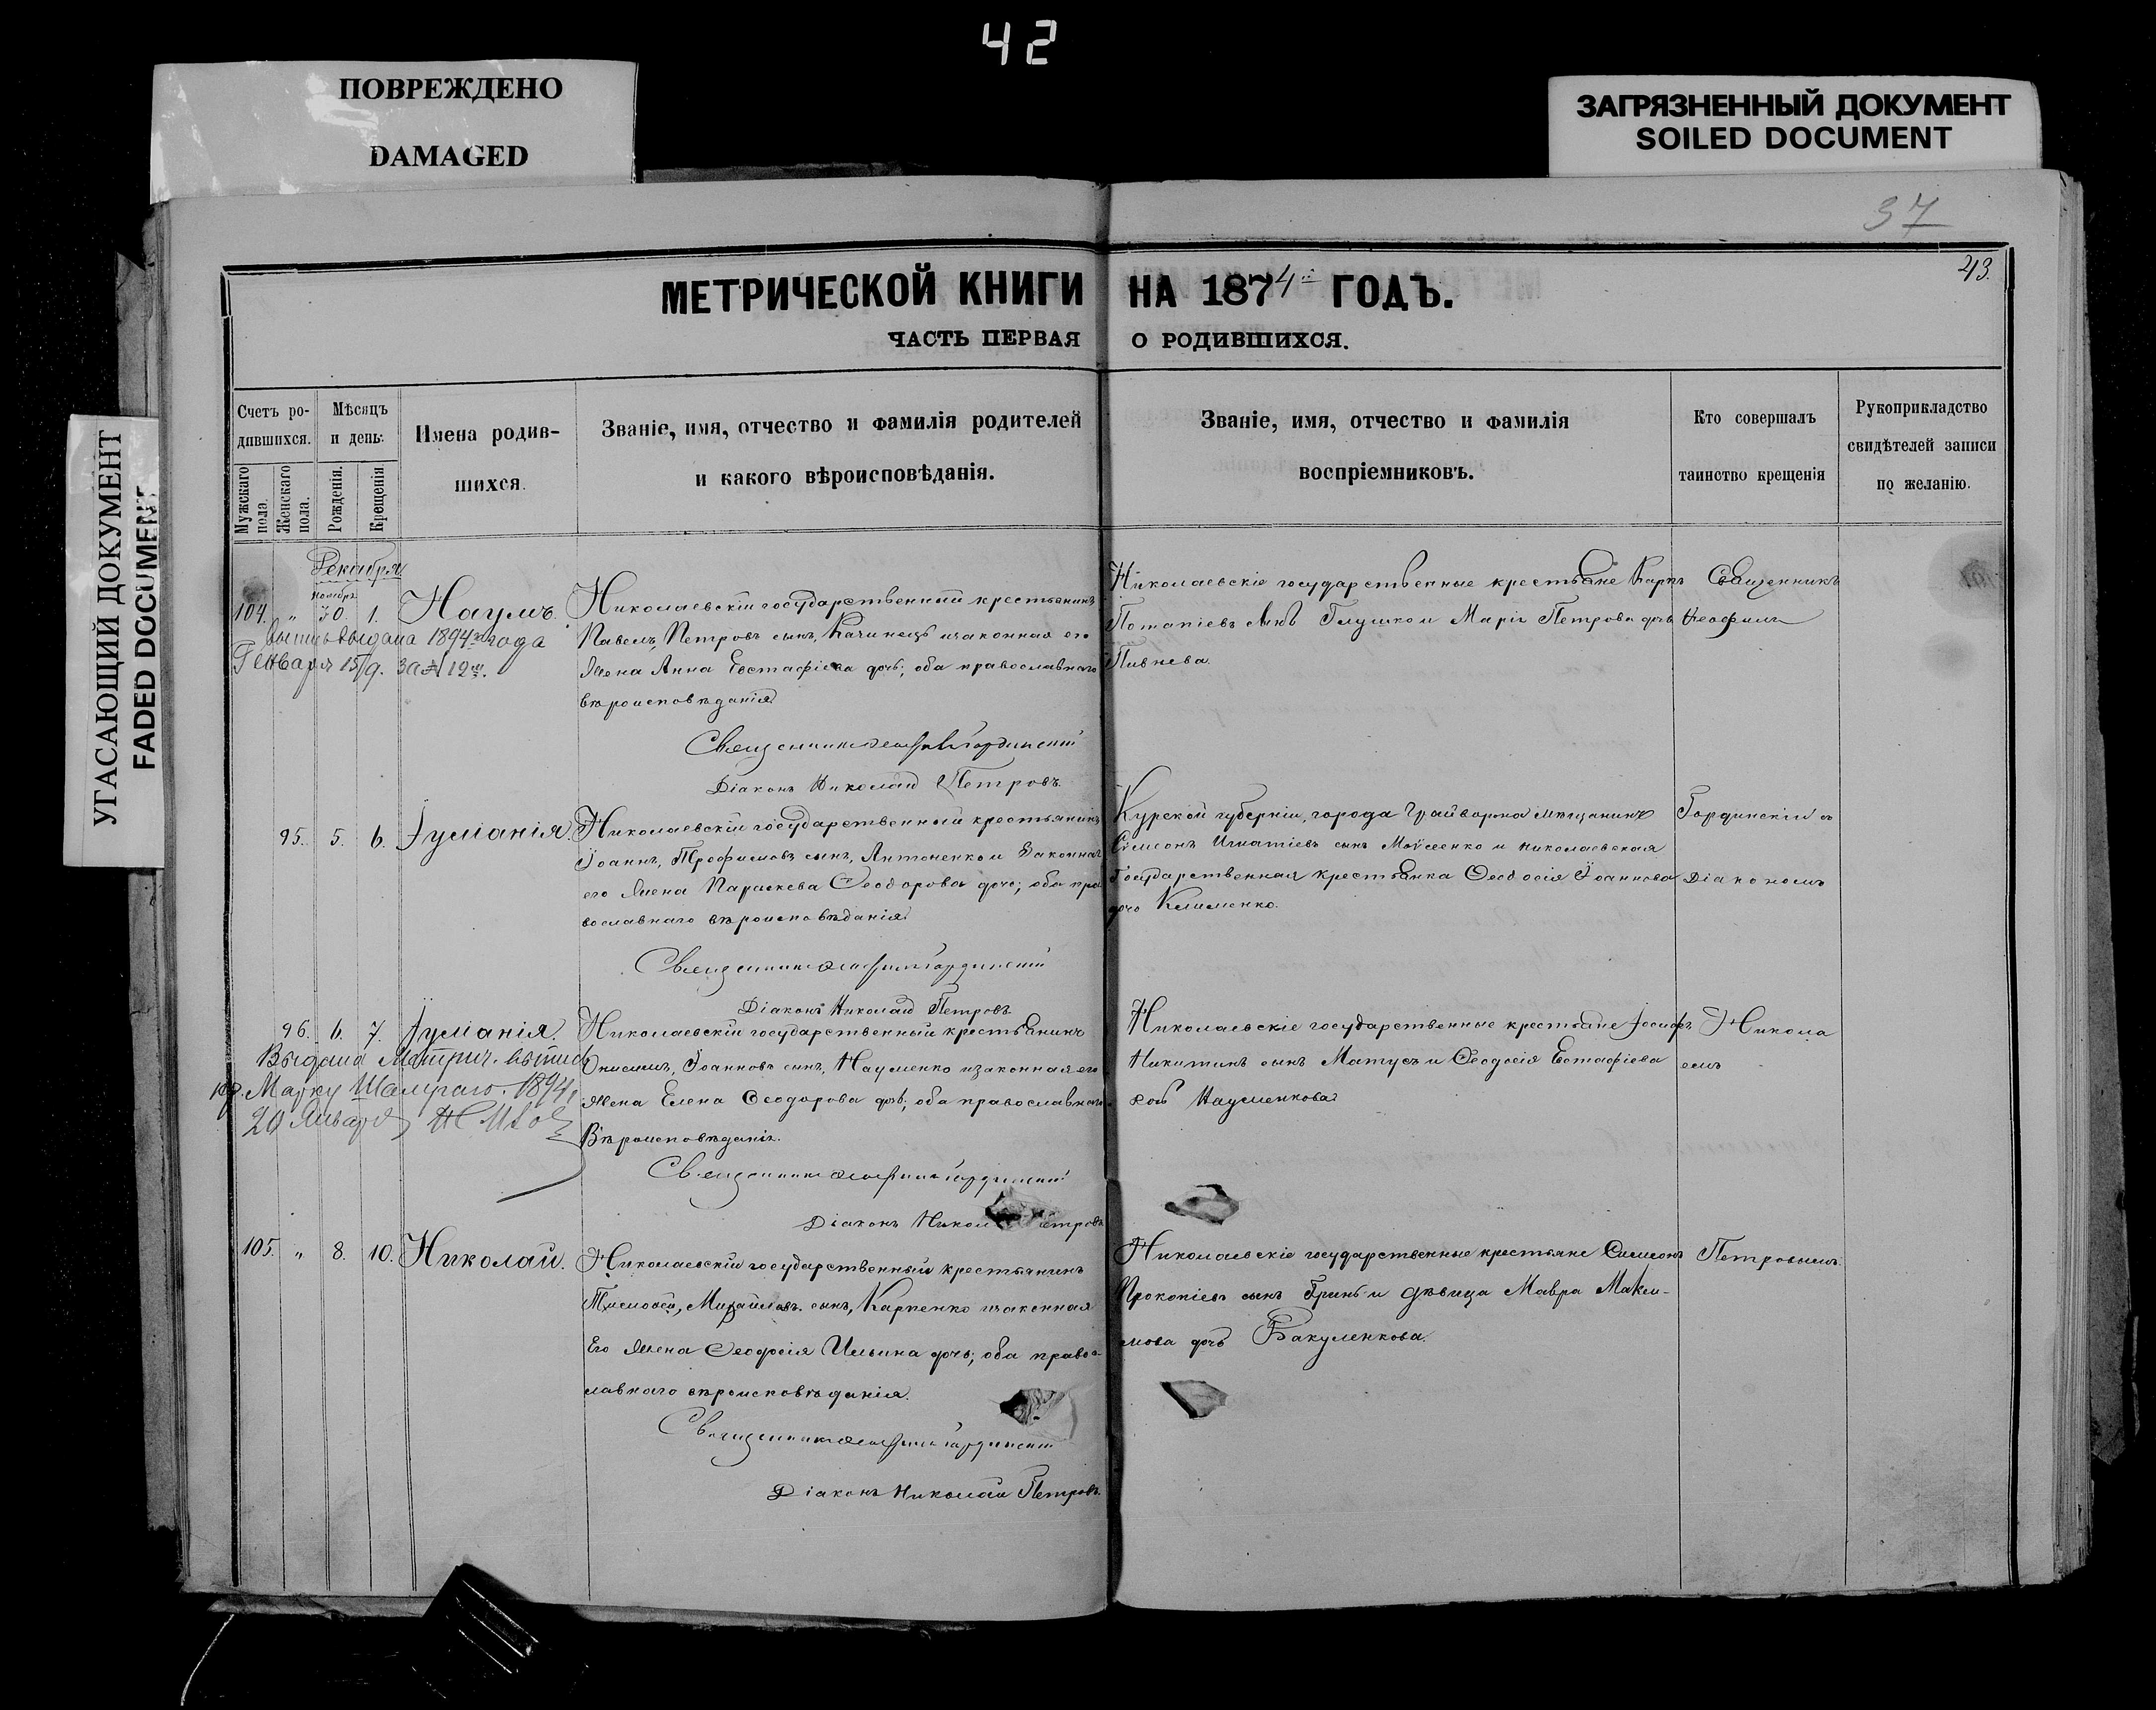 42
ПОВРЕЖДЕНО
DAMAGED
ЗАГРЯЗНЕННЫЙ ДОКУМЕНТ
SOILED DOCUMENT
УГАСАЮЩИЙ ДОКУМЕНТ
FADED DOCUMENT
37
43.
МЕТРИЧЕСКОЙ КНИГИ НА 1874й ГОДЪ.
ЧАСТЬ ПЕРВАЯ О РОДИВШИХСЯ.
Счетъ ро-
дившихся.
Мужскаго
пола.
Женскаго
пола.
Мѣсяцъ
и день.
Рожденія.
Крещенія
Имена родив-
шихся.
Званіе, имя, отчество и фамилія родителей
и какого вѣроисповѣданія.
Званіе, имя, отчество и фамилія
воспріемниковъ.
Кто совершалъ
таинство крещенія
Рукоприкладство
свидѣтелей записи
по желанію.
Декабря
ноябрь
104. " 30. 1. Наумъ.
выпись выдана 1894го года
Генваря 15 д. за № 12м.
Николаевскій государственный крестьянинъ
Павелъ, Петровъ сынъ, Качинецъ и законная его
жена Анна Евстафіева дочь; оба православнаго
вѣроисповѣданія.
Священникъ Гординскій
Діаконъ Николай Петровъ.
Николаевскіе государственные крестьяне Карпъ
Потапіевъ сынъ Глушко и Марія Петрова дочь
Пивнева.
Священникъ
Неофилъ
95. 5. 6. Іуліанія.
Николаевскій государственный крестьянинъ
Іоаннъ, Трофимовъ сынъ, Антоненко и законная
его жена Параскева Ѳеодорова дочь; оба пра
вославнаго вѣроисповѣданія.
Священникъ Гординскій
Діаконъ Николай Петровъ
Курской губерніи, города Грайворона мѣщанинъ
Сѵмеонъ Игнатіевъ сынъ Моѵсеенко и николаевская
Государственная крестьянка Ѳеодосія Іоаннова
дочь Клименко.
Гординскій съ
Діакономъ
96. 6. 7. Іуліанія.
Выдана Метрич. выпись
Марку 1894
20 Января
Николаевскій государственный крестьянинъ
Онисимъ, Іоанновъ сынъ, Науменко и законная его
жена Елена Ѳеодорова дочь; оба православнаго
Вѣроисповѣданія.
Священникъ Гординскій
Діаконъ Никол етровъ
Николаевскіе государственные крестьяне Іосифъ
Никитинъ сынъ Матусъ и Ѳеодосія Евстафіева
дочь Науменкова
Никола
емъ
105. " 8. 10. Николай.
Николаевскій государственный крестьянинъ
Тимоѳей, Михайловъ сынъ, Карпенко и законная
Его жена Ѳеодосія Ильина дочь; оба право-
славнаго вѣроисповѣданія.
Священникъ Гординскій
Діаконъ Николай Петровъ.
Николаевскіе государственные крестьяне Симеонъ
Прокопіевъ сынъ Гринь и дѣвица Мавра Макси-
мова дочь Бакуменкова.
Петровымъ.